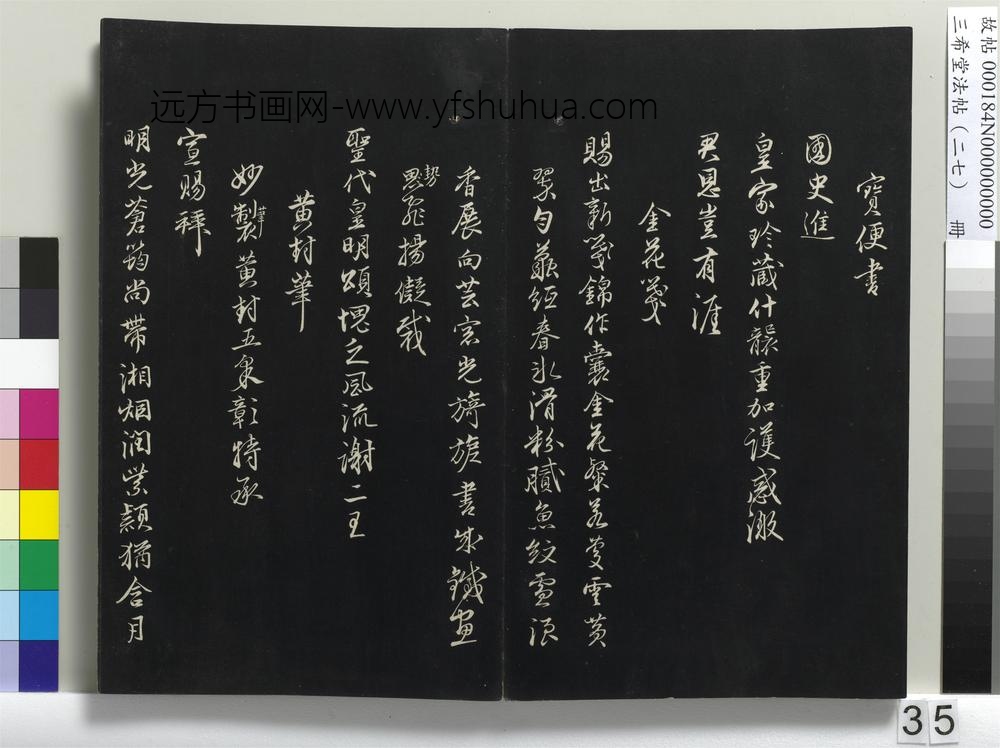 寶便書
國史進
皇家珍藏什襲重加護感激
君恩豈有涯
金花箋
賜出新箋錦作囊金花粲若蔓雲黃
翠勻蘸經春冰滑粉膩魚紋雪浪
香展向芸窓光旖旎書成鐵畫
勢
思飛揚儗裁
聖代皇明頌愧乏風流謝二王
黃封筆
妙製筆黃封五采彰特承
宣賜拜
明光蒼筠尚帶湘烟潤紫穎猶含月
远方书画网-www.yfshuhua.com
故帖 000184N000000000
三希堂法帖（二七） 冊
35